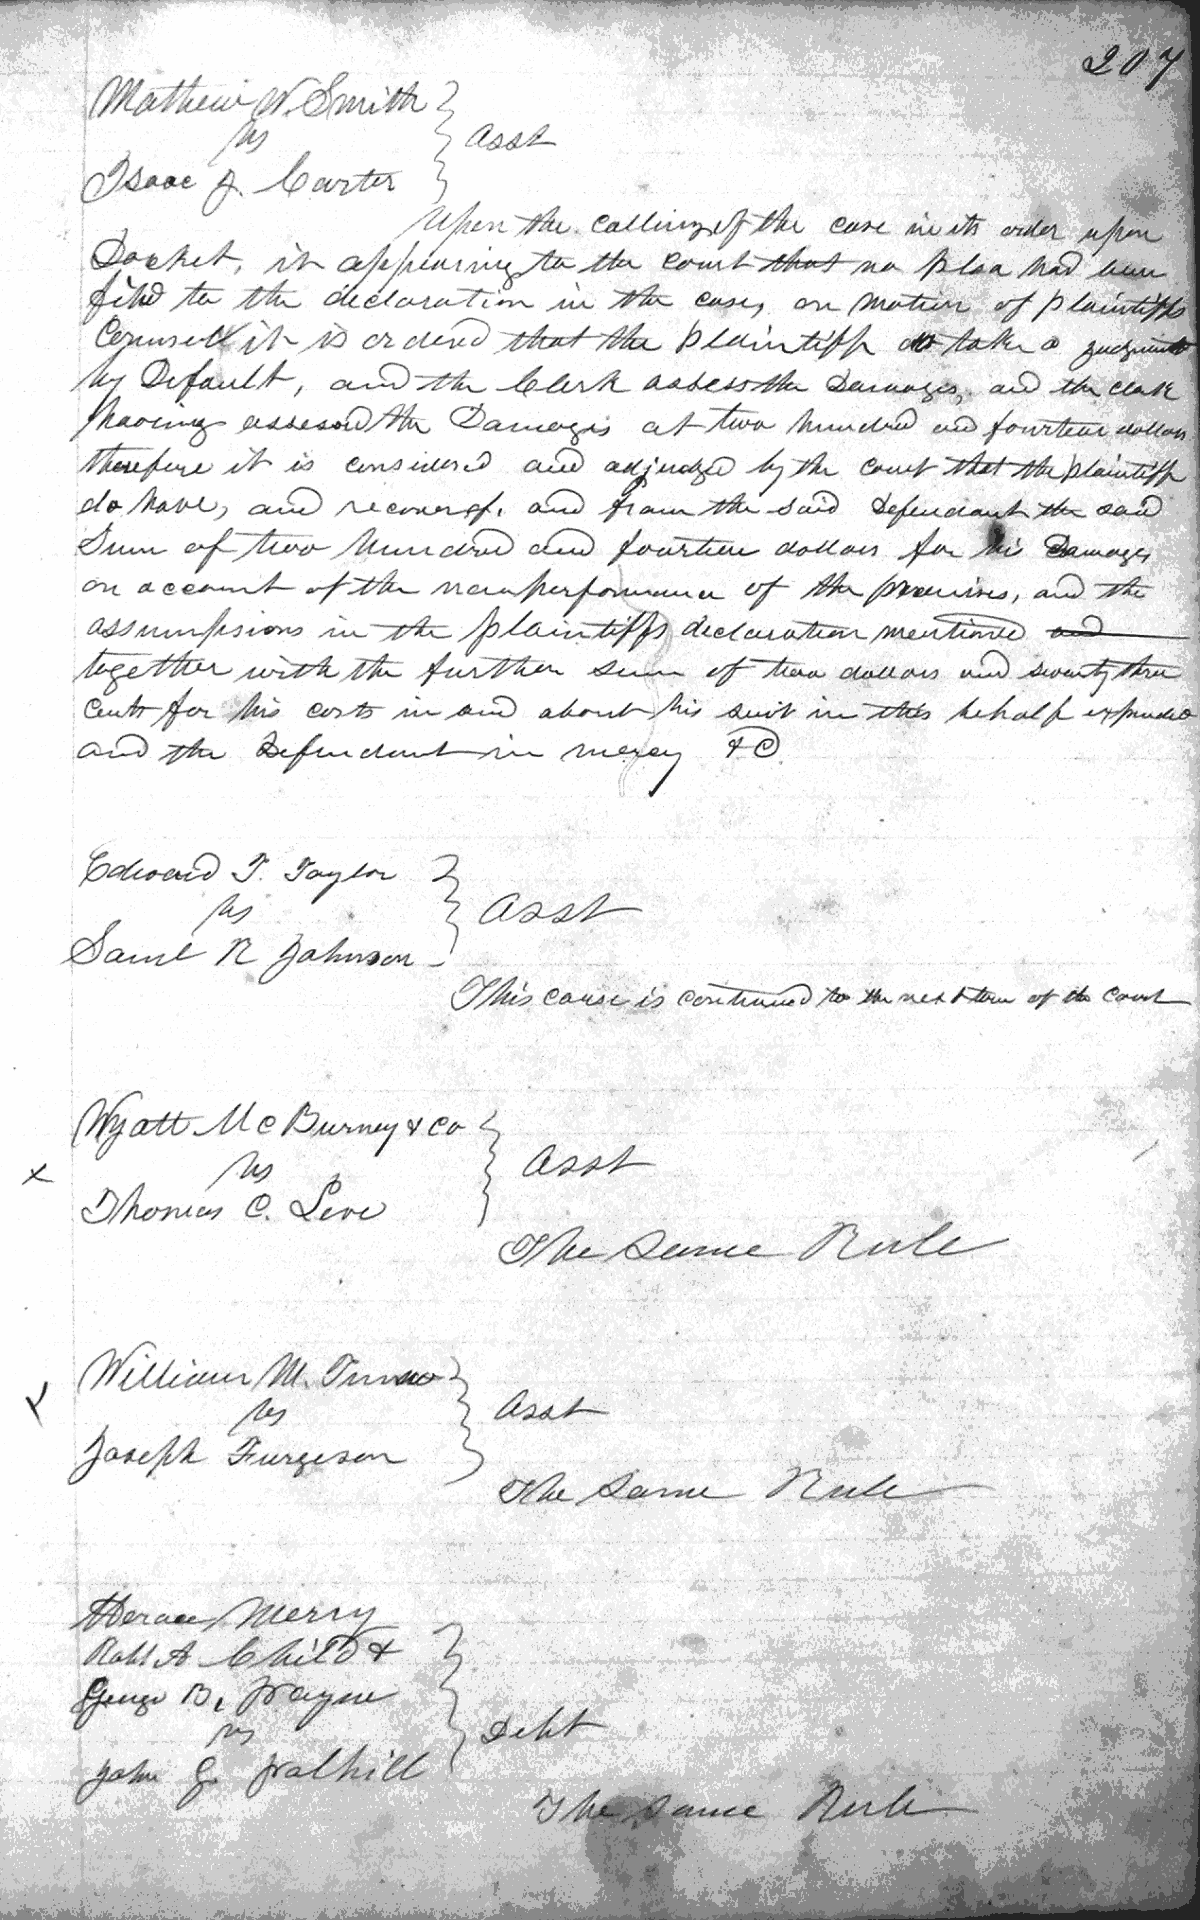 207
Mathew W. Smith
vs
Asst
Isaac J. Carter
Upon the calling of the case in its order upon
Docket, it appearing to the court that no plea had been
filed to the declaration in the case, on motion of plaintiffs
Counsel it is ordered that the plaintiff do take a judgment
by Default, and the Clerk assess the Damages, and the clerk
having assessed the Damages at two hundred and fourteen dollars
therefore it is considered and adjudged by the court that the plaintiff
do have, and recover of, and from the said Defendant the said
Sum of two hundred and fourteen dollars for his Damages
on account of the nonperformance of the promises, and the
assumpsions in the plaintiffs declaration mentioned and
together with the further sum of two dollars and seventy three
cents for his costs in and about his suit in this behalf expended
and the Defendant in mercy &C.
Edward T. Taylor
vs
Asst
Saml R Johnson
This cause is continued to the next term of the Court
Wyatt McBurney & Co
x
vs
Asst
Thomas C.
The Same Rule
William M.
vs
Asst
Joseph Furgeson
The Same Rule
Horace Merry
Robt A Child &
George B. Wayne
vs
Debt
John G. Walhill
The Same Rule